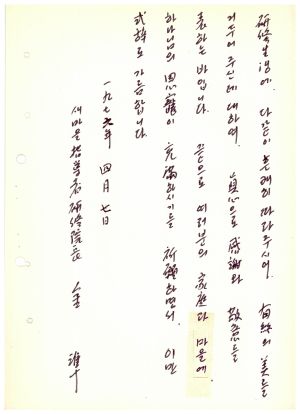 研修生活에. 다같이 혼연히 따라주시어. 有終의 美를
거두어 주신데 대하여. 真心으로 感謝와 敬意를
表하는 바입니다. 끝으로 여러분의 家庭과 마을에
하나님의 恩寵이 充滿하시기를 祈願하면서. 이만
式辞로 가름합니다.
一九七六年 四月 七日
새마을指導者研修院長 金 準